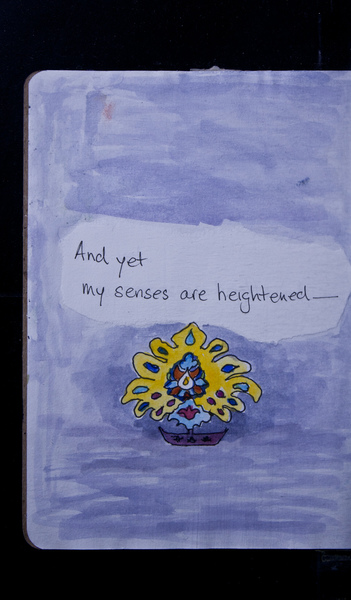 And yet
my senses are heightened—